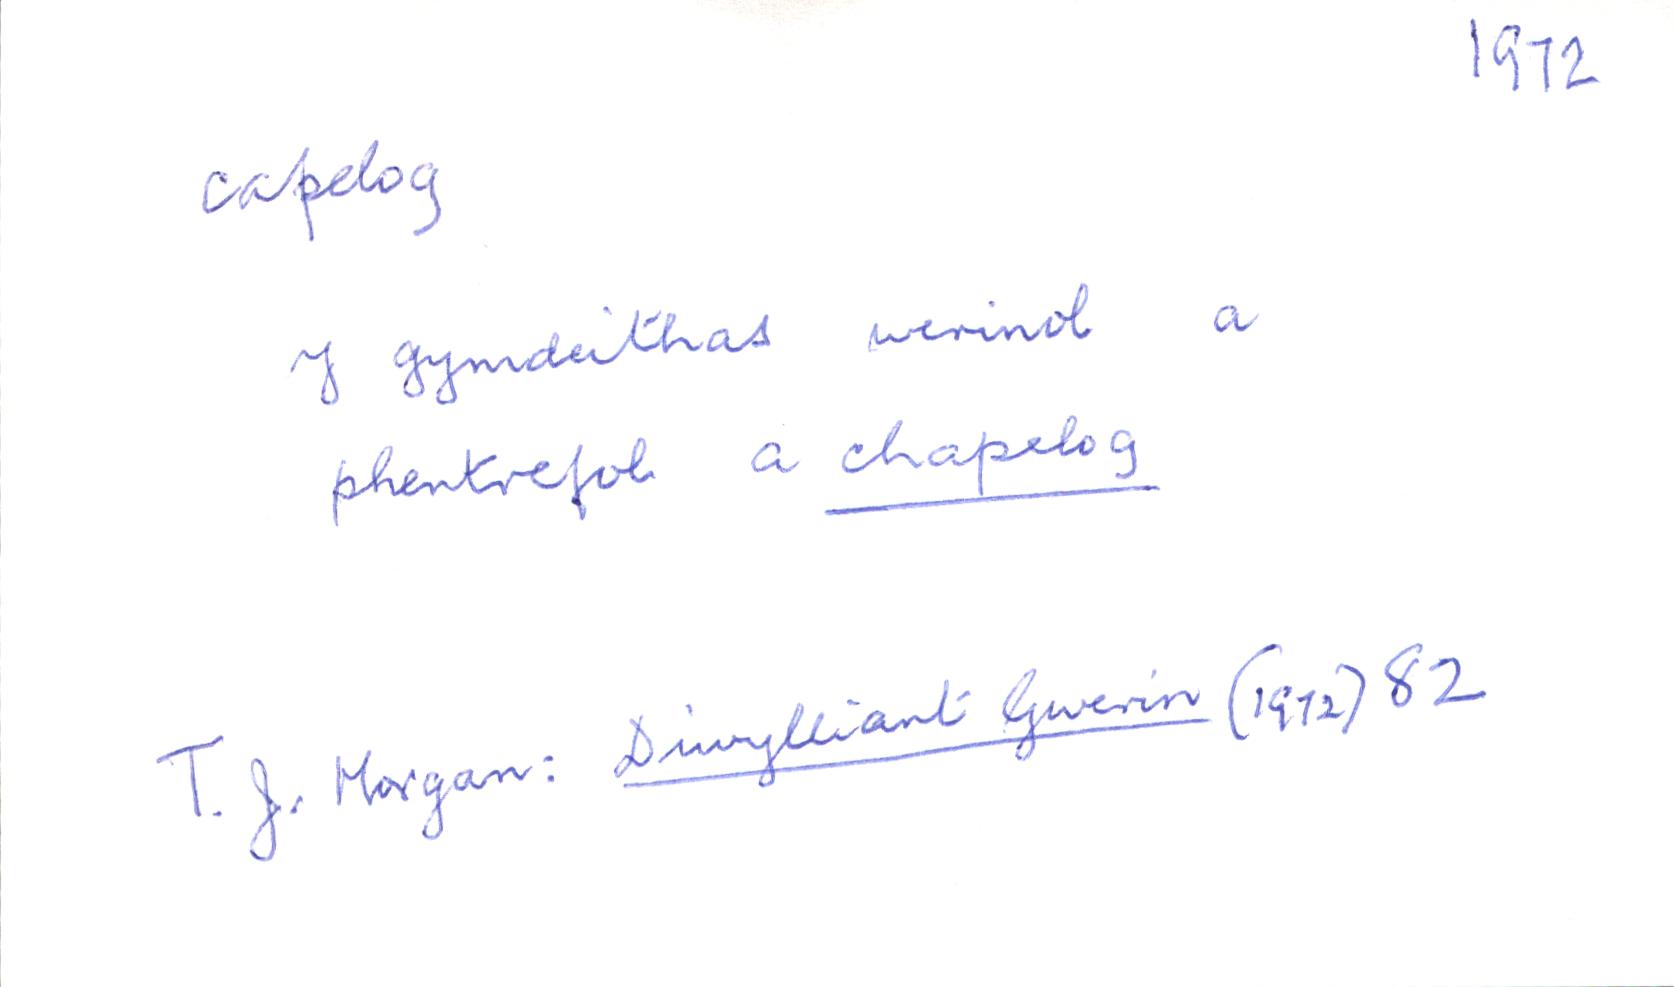 1972
capelog
y gymdeithas werinol a
phentrefol a chapelog
T. J. Morgan: Diwylliant Gwerin (1972) 82